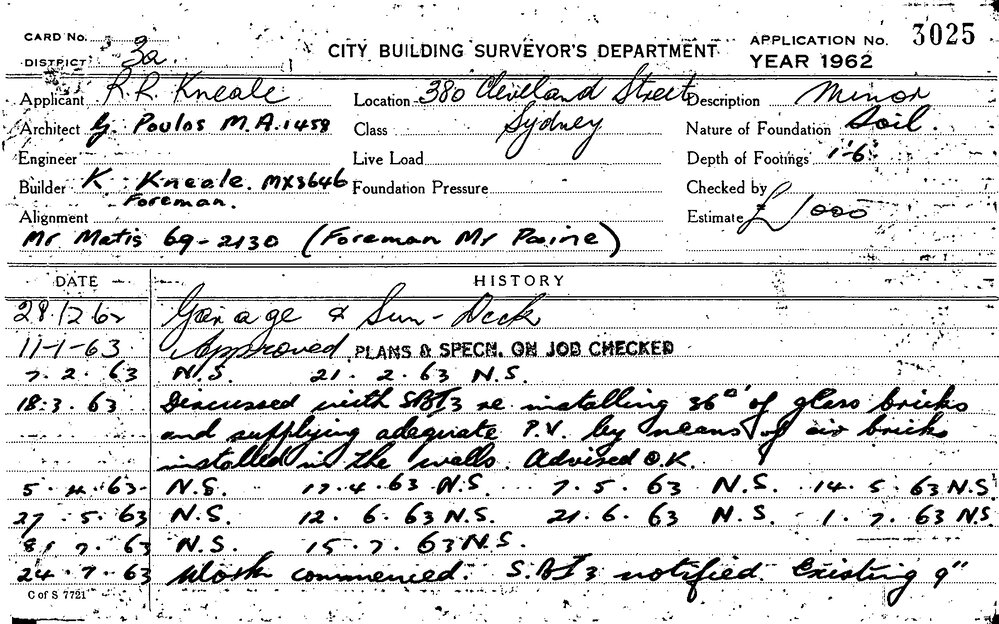 CARD No. CITY BUILDING SURVEYOR'S DEPARTMENT APPLICATION No. 3025
DISTRICT 3a. YEAR 1962
Applicant R.R. Kneale Location 380 Cleveland Street Description Minor
Architect G. Poulos M.A.1458 Class Sydney Nature of Foundation Soil.
Engineer Live Load Depth of Footings 1'-6"
Builder K. Kneale. MX3646 Foundation Pressure Checked by
Foreman.
Alignment Estimate £1000
Mr Matis 69-2130 (Foreman Mr Paine)
DATE HISTORY
28.12.62 Garage & Sun-Deck
11-1-63 Approved PLANS & SPECN. ON JOB CHECKED
7.2.63 N.S. 21.2.63 N.S.
18.3.63 Discussed with SBI3 re installing 36" of glass bricks
and supplying adequate P.V. by means of air bricks
installed in the walls. Advised O.K.
5.4.63 N.S. 17.4.63 N.S. 7.5.63 N.S. 14.5.63 N.S.
27.5.63 N.S. 12.6.63 N.S. 21.6.63 N.S. 1.7.63 N.S.
8.7.63 N.S. 15.7.63 N.S.
24.7.63 Work commenced. S.BI3 notified. Existing 9"
C of S 7721